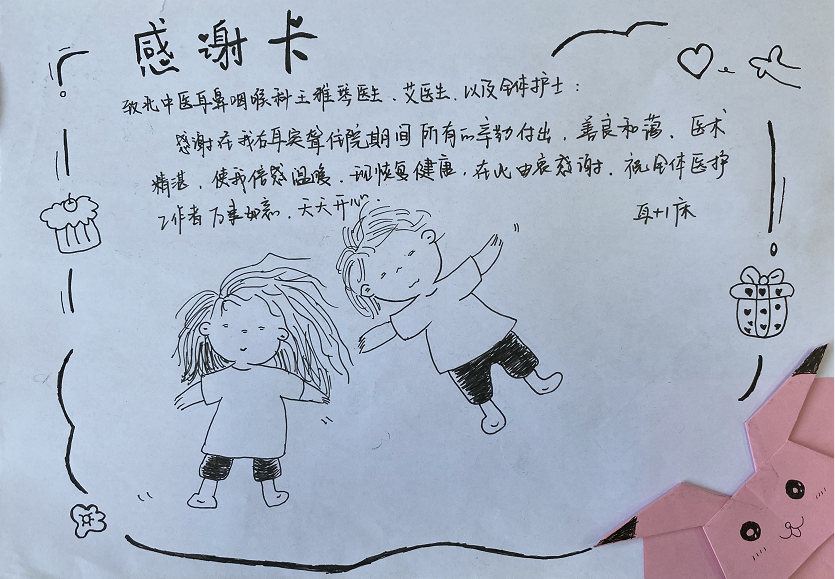 感谢卡
致北中医耳鼻咽喉科王雅琴医生、艾医生、以及全体护士：
感谢在我右耳突聋住院期间所有的辛勤付出，善良和蔼，医术
精湛，使我倍感温暖，现恢复健康，在此由衷感谢，祝全体医护
工作者万事如意，天天开心．
耳+1床